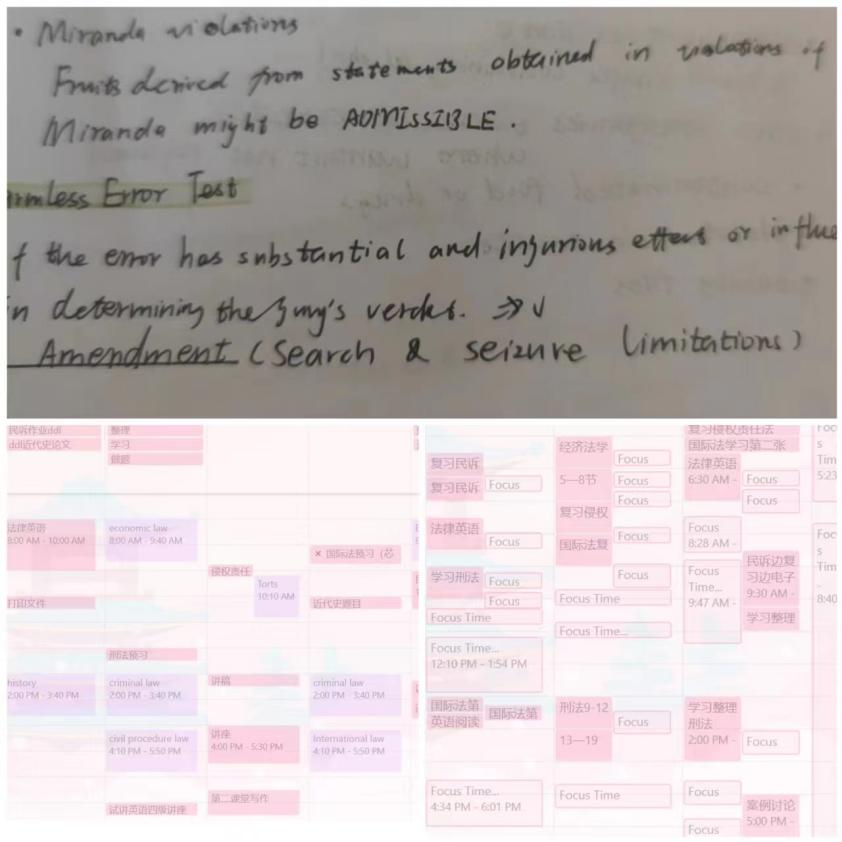 • Miranda violations
Fruits derived from statements obtained in violations of
Miranda might be ADMISSIBLE.
rmless Error Test
f the error has substantial and injurious effect or influe
in determining the jury's verdict. ⇒ √
Amendment (Search & seizure limitations)
民诉作业ddl
ddl近代史论文
整理
学习
做题
法律英语
8:00 AM - 10:00 AM
economic law
8:00 AM - 9:40 AM
× 国际法预习（芯
侵权责任
Torts
10:10 AM
打印文件
近代史题目
刑法预习
history
2:00 PM - 3:40 PM
criminal law
2:00 PM - 3:40 PM
讲稿
criminal law
2:00 PM - 3:40 PM
civil procedure law
4:10 PM - 5:50 PM
讲座
4:00 PM - 5:30 PM
International law
4:10 PM - 5:50 PM
第二课堂写作
试讲英语四级讲座
复习民诉
复习民诉
Focus
法律英语
Focus
学习刑法
Focus
Focus
Focus Time
Focus Time...
12:10 PM - 1:54 PM
国际法第
英语阅读
国际法第
Focus Time...
4:34 PM - 6:01 PM
经济法学
5—8节
Focus
Focus
Focus
复习侵权
Focus
国际法复
Focus
Focus Time
Focus Time...
刑法9-12
13—19
Focus
Focus Time
复习侵权责任法
国际法学习第二张
法律英语
6:30 AM -
Focus
Focus
Focus
8:28 AM -
Focus
Time...
9:47 AM -
民诉边复
习边电子
9:30 AM -
学习整理
学习整理
刑法
2:00 PM -
Focus
Focus
案例讨论
5:00 PM -
Focus
Foc
s
Tim
5:23
Foc
s
Tim
8:40